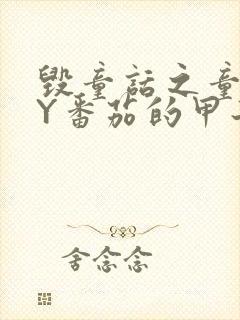 毁童话之童
Y番茄的甲
舍念念